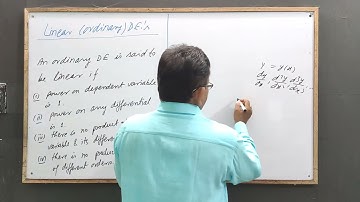 Linear (ordinary) DE's
An ordinary DE is said to
be linear if
(i) power on dependent variable
is 1.
(ii) power on any differential
is 1.
(iii) there is no product
variable & its
(iv) there is no produc
of different orders
y = y(x)
dy/dx, d²y/dx², d³y/dx³, ...